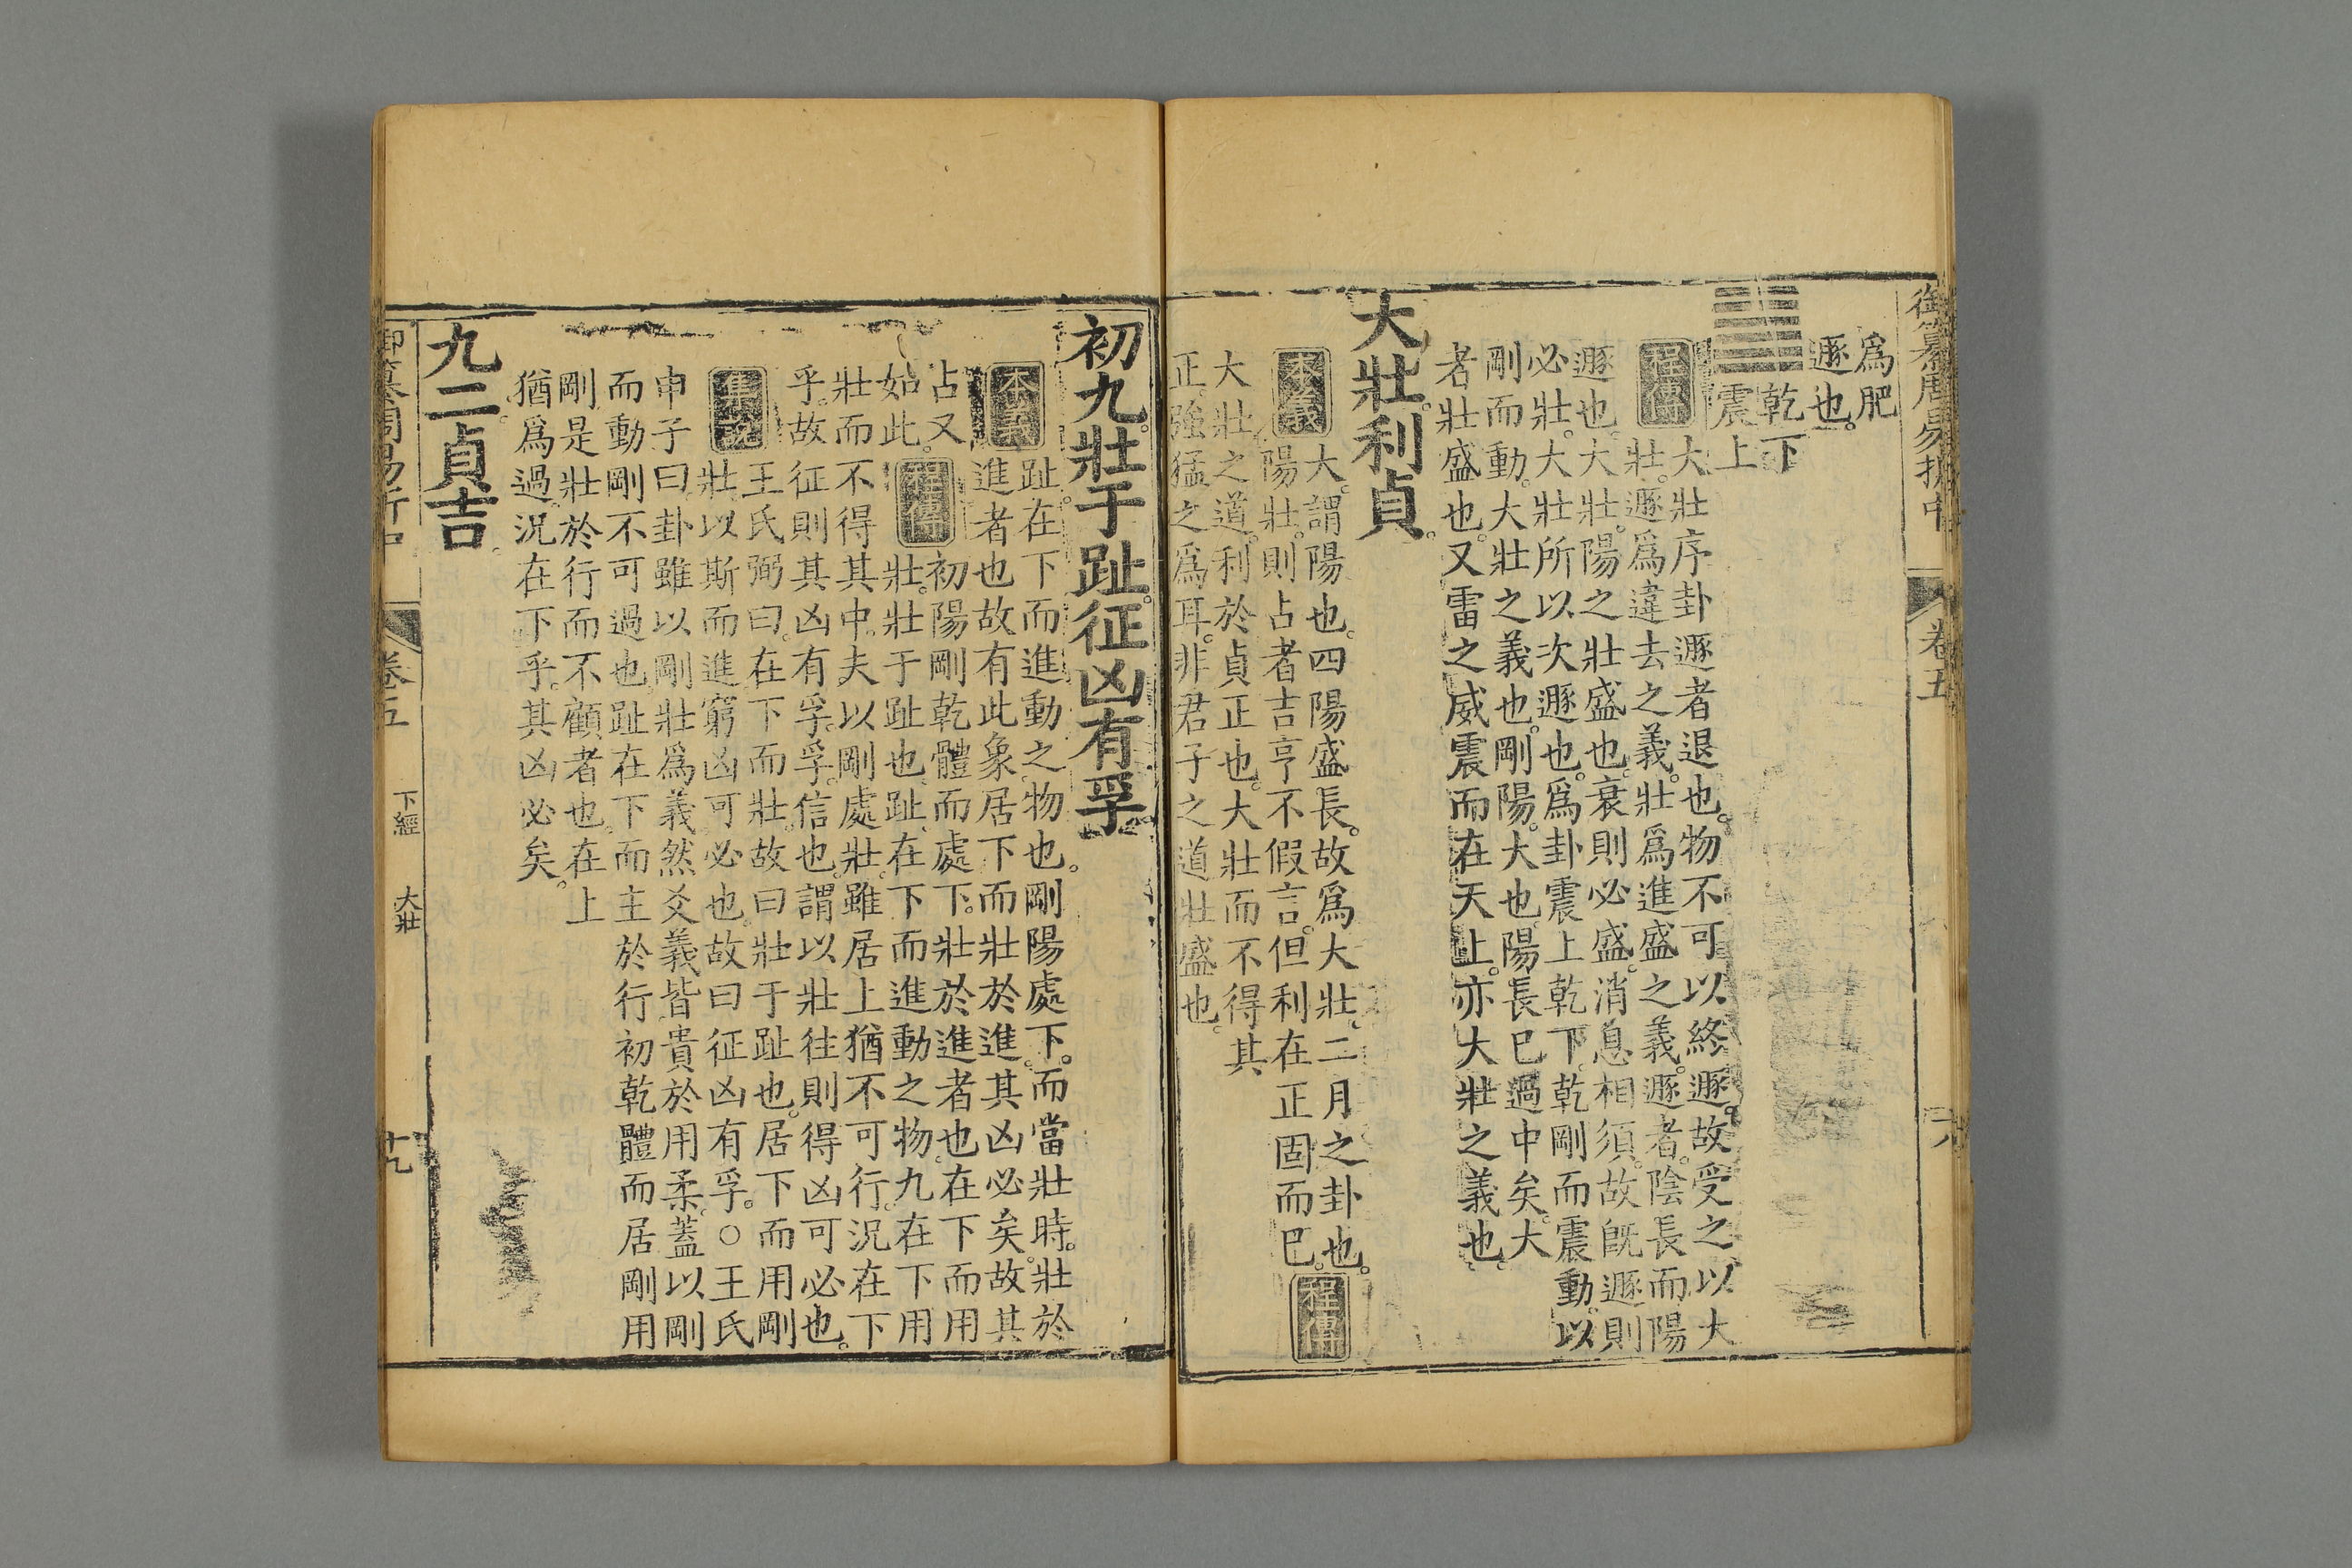 御纂周易折中 卷五
爲肥
遯也。
乾下
震上
程傳 大壯序卦遯者退也。物不可以終遯。故受之以大
壯。遯爲違去之義。壯爲進盛之義。遯者。陰長而陽
遯也。大壯。陽之壯盛也。衰則必盛。消息相須。故旣遯則
必壯。大壯所以次遯也。爲卦震上乾下。乾剛而震動。以
剛而動。大壯之義也。剛陽。大也。陽長已過中矣。大
者壯盛也。又雷之威震而在天上。亦大壯之義也。
大壯。利貞。
本義 大。謂陽也。四陽盛長。故爲大壯。二月之卦也。
陽壯。則占者吉亨不假言。但利在正固而已。程傳
大壯之道。利於貞正也。大壯而不得其
正。強猛之爲耳。非君子之道壯盛也。
初九。壯于趾。征凶有孚。
本義 趾在下而進動之物也。剛陽處下。而當壯時。壯於
進者也。故有此象。居下而壯於進。其凶必矣。故其
占又
如此。
程傳 初陽剛乾體而處下。壯於進者也。在下而用
壯。壯于趾也。趾。在下而進動之物。九在下用
壯而不得其中。夫以剛處壯。雖居上猶不可行。況在下
乎。故征則其凶有孚。孚。信也。謂以壯往則得凶可必也。
集說 王氏弼曰。在下而壯。故曰壯于趾也。居下而用剛
壯。以斯而進。窮凶可必也。故曰征凶有孚。○王氏
申子曰。卦雖以剛壯爲義。然爻義皆貴於用柔。蓋以剛
而動。剛不可過也。趾在下而主於行。初乾體而居剛用
剛。是壯於行而不顧者也。在上
猶爲過。況在下乎。其凶必矣。
九二。貞吉。
御纂周易折中 卷五 下經 大壯 十九